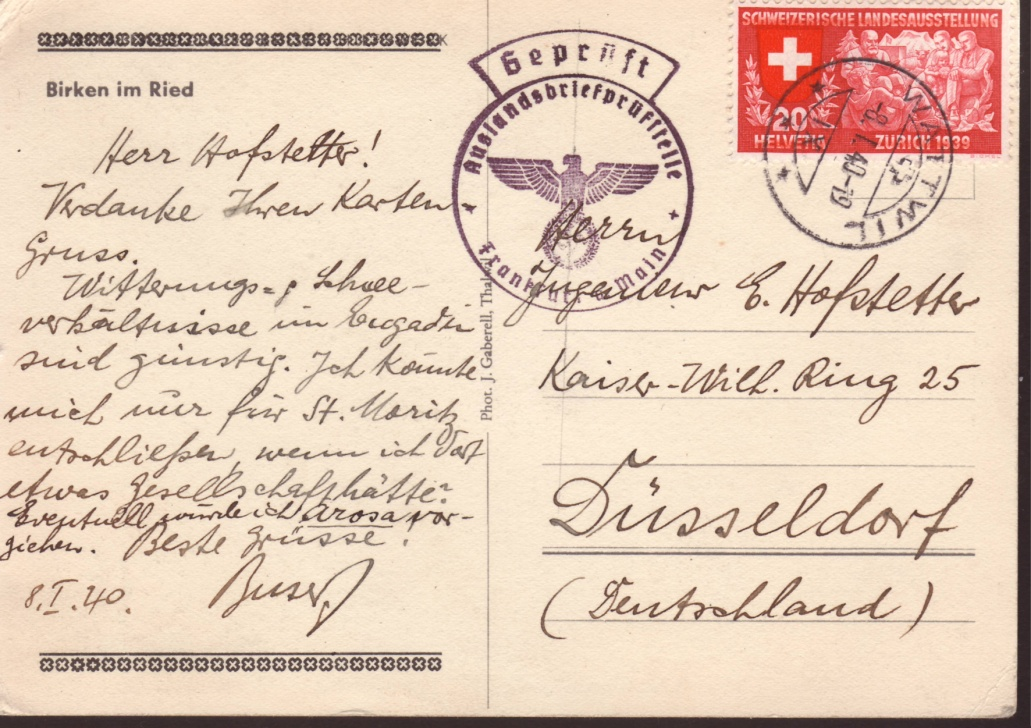 Birken im Ried
Herr Hofstetter!
Verdanke Ihren Karten
Gruss.
Witterungs- & Schnee-
verhältnisse im Engadin
sind günstig. Ich könnte
mich nur für St. Moritz
entschließen, wenn ich dort
etwas Gesellschaft hätte.
Eventuell würde ich Arosa vor-
ziehen. Beste Grüsse!
8.I.40. Buser
Phot. J. Gaberell, Thal
Geprüft
Auslandsbriefprüfstelle
Frankfurt a. Main
SCHWEIZERISCHE LANDESAUSSTELLUNG
20
HELVETIA ZÜRICH 1939
WATTWIL
-8.I.40-19
Herrn
Ingenieur E. Hofstetter
Kaiser-Wilh. Ring 25
Düsseldorf
(Deutschland)